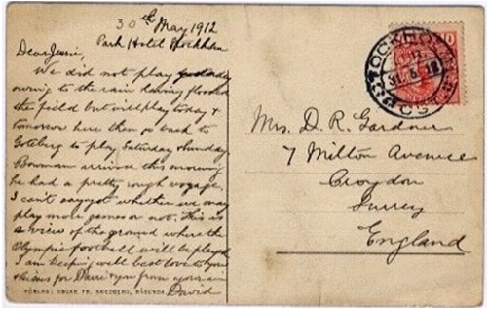 30th May 1912
Park Hotel Stockholm
Dear Jessie,
We did not play yesterday
owing to the rain having flooded
the field but will play today &
tomorrow here then go back to
Goteborg to play Saturday & Sunday.
Bowman arrived this morning
he had a pretty rough voyage,
I can't say yet whether we may
play more games or not. This is
a view of the ground where the
Olympic football will be played
I am keeping well best love to you
& for Davie from
David
FÖRLAG: OSCAR FR. SKEDBERG, RÅSUNDA
STOCKHOLM
31.5.12
Mrs. D. R. Gardner
7 Milton Avenue
Croydon
Surrey
England